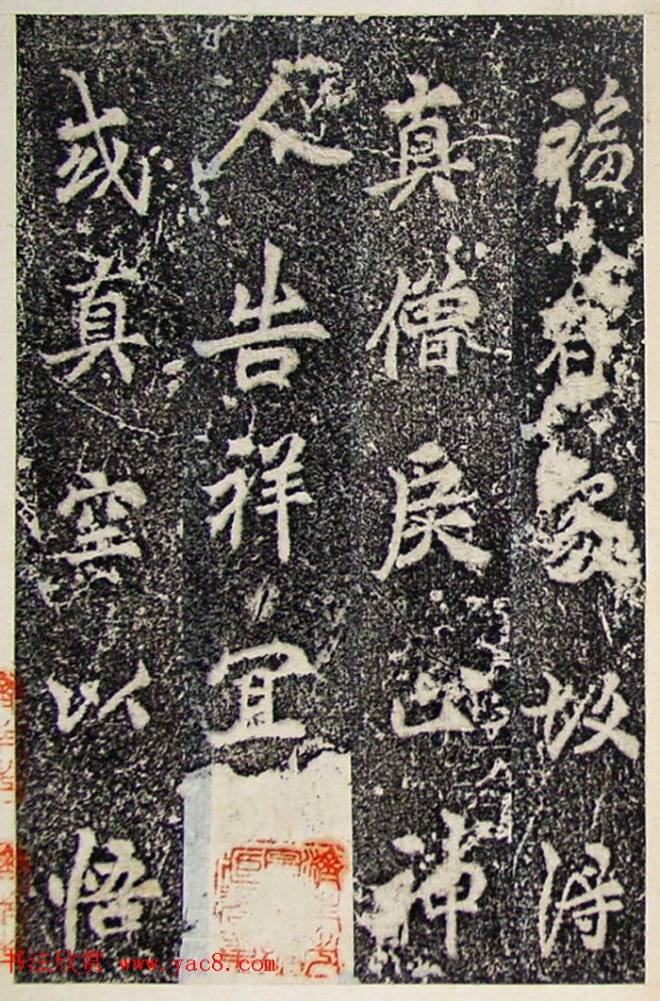 福故得
真僧戾止神
人告祥宜
或真空以悟
书法欣赏 www.yac8.com